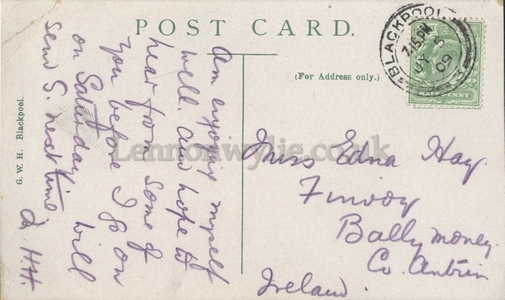 POST CARD.
Am enjoying myself
well. And hope to
hear from some of
you before I go on
on Saturday will
send S. next time
H.H.
(For Address only.)
BLACKPOOL
7.15PM
JY 5
09
HALFPENNY
Miss Edna Hay
Finvoy
Ballymoney.
Co. Antrim
Ireland.
G. W. H. Blackpool.
Lennonwylie.co.uk